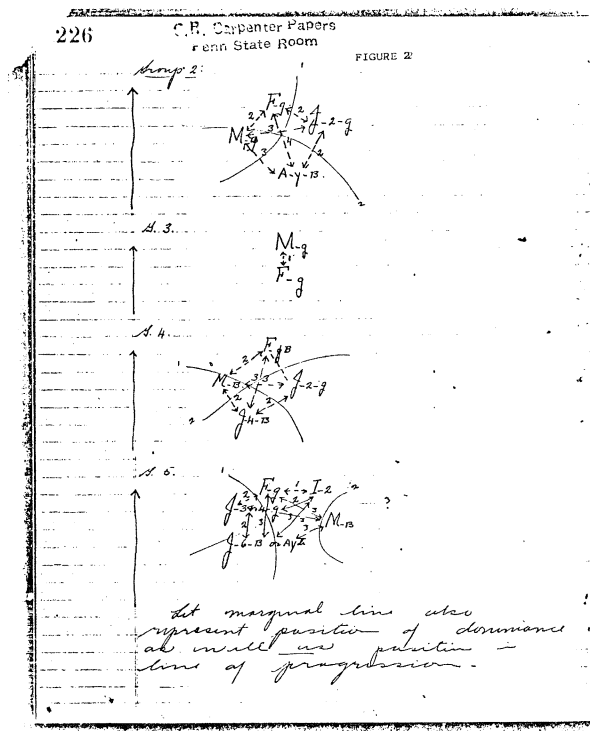 226
C.R. Carpenter Papers
Penn State Room
FIGURE 2
Group 2:
1
F-g
2 2
J-2-g
M-g
3
4
3 2
A-y-13.
2
G. 3.
M-g
1
F-g
G. 4.
1
F-g
2
M-13 3 3 J-2-g
2 2
2
J-4-13
G. 5.
1
F-g 1 I-2 2
2 2
J-3-4-g 3
3 3
2 3 3 M-13
?
J-6-13 or Ay
Let marginal line also
represent position of dominance
as well as position in
line of progression.